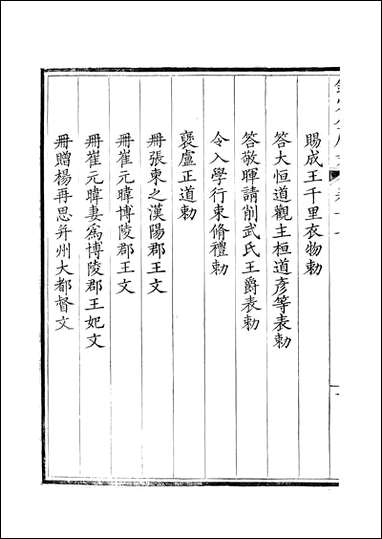 賜成王千里衣物勅
答大恒道觀主桓道彥等表勅
答敬暉請削武氏王爵表勅
令入學行束脩禮勅
襃盧正道勅
冊張柬之漢陽郡王文
冊崔元暐博陵郡王文
冊崔元暐妻爲博陵郡王妃文
冊贈楊再思并州大都督文